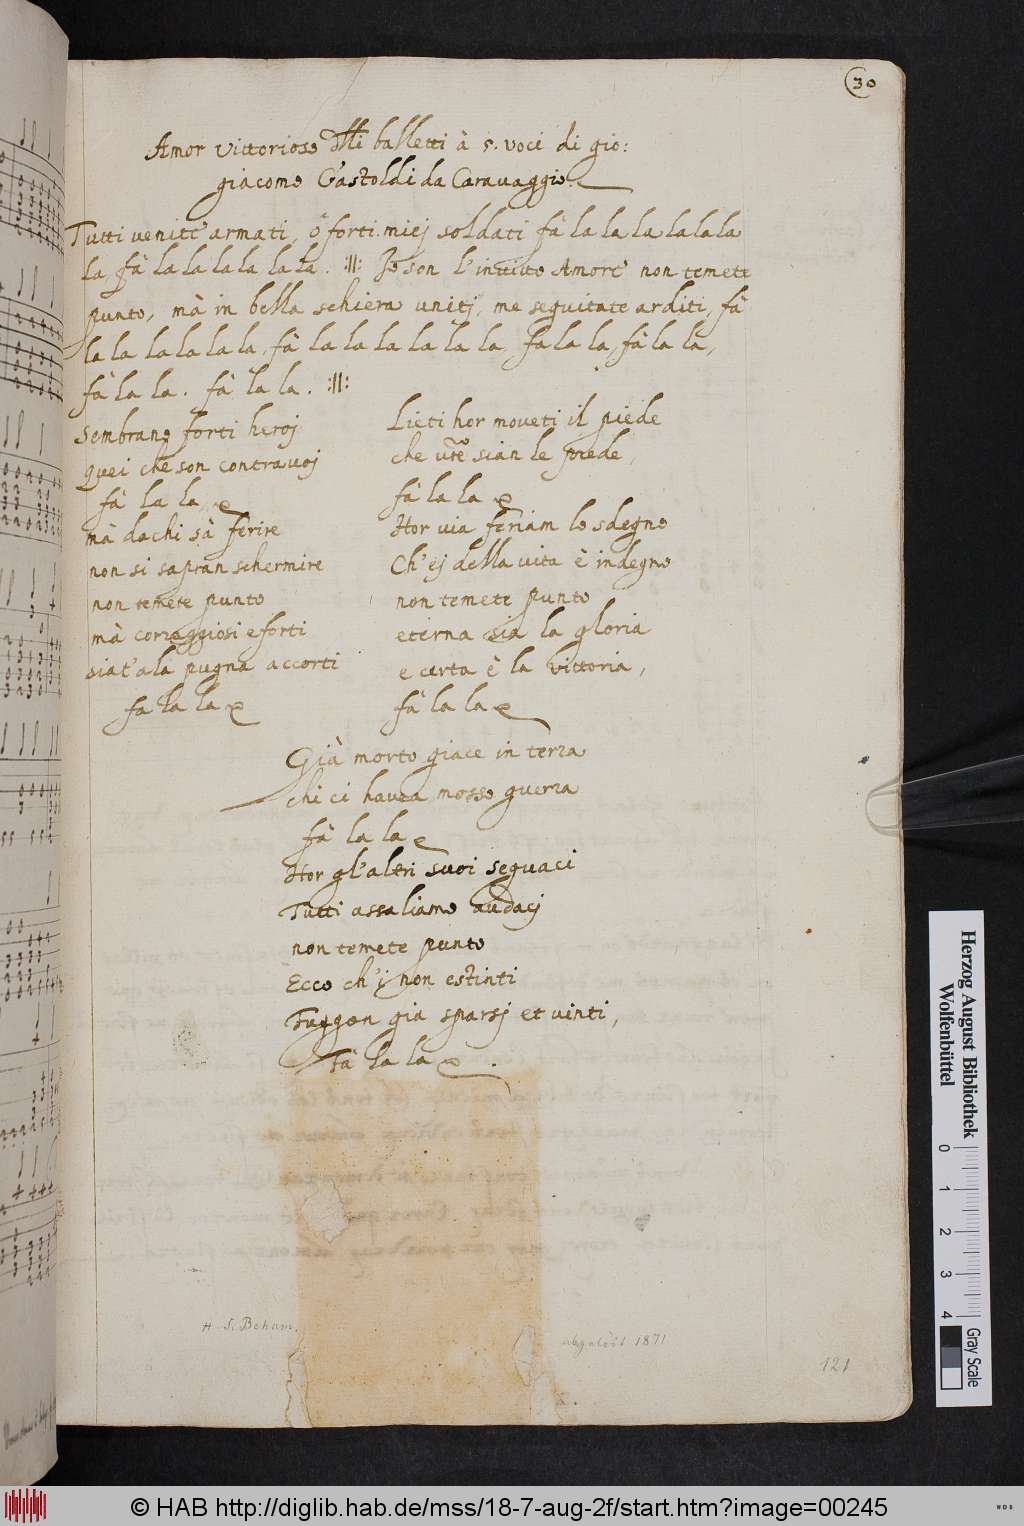 30
Amor vittorioso Alli balletti à 5. voci di gio:
giacomo Gastoldi da Caravaggio.
Tutti venite armati, ò forti miej soldati fà la la la la la la
la fà la la la la la la. :||: Io son l'invitto Amore non temete
punto, mà in bella schiera unitj, me seguitate arditi, fà
la la la la la la, fà la la la la la la la, fa la la, fà la la,
fà la la. fà la la. :||:
Sembrano forti heroj
quei che son contra voj
fà la la
mà da chi sà ferire
non si sapran schermire
non temete punto
mà coraggiosi e forti
siat'ala pugna accorti
fa la la
Lieti hor moveti il piede
che vre sian le prede,
fà la la
Hor via feriam lo sdegno
Ch'ej della vita è indegno
non temete punto
eterna sia la gloria
e certa è la vittoria,
fà la la
Già morto giace in terra
chi ci havea mosso guerra
fà la la
Hor gl'altri suoi seguaci
Tutti assaliamo audacj
non temete punto
Ecco ch'i non estinti
Fuggon gia sparsj et vinti,
Fà la la
H. S. Beham.
abgelöst 1871
121
Herzog August Bibliothek
Wolfenbüttel
0 1 2 3 4
Gray Scale
© HAB http://diglib.hab.de/mss/18-7-aug-2f/start.htm?image=00245